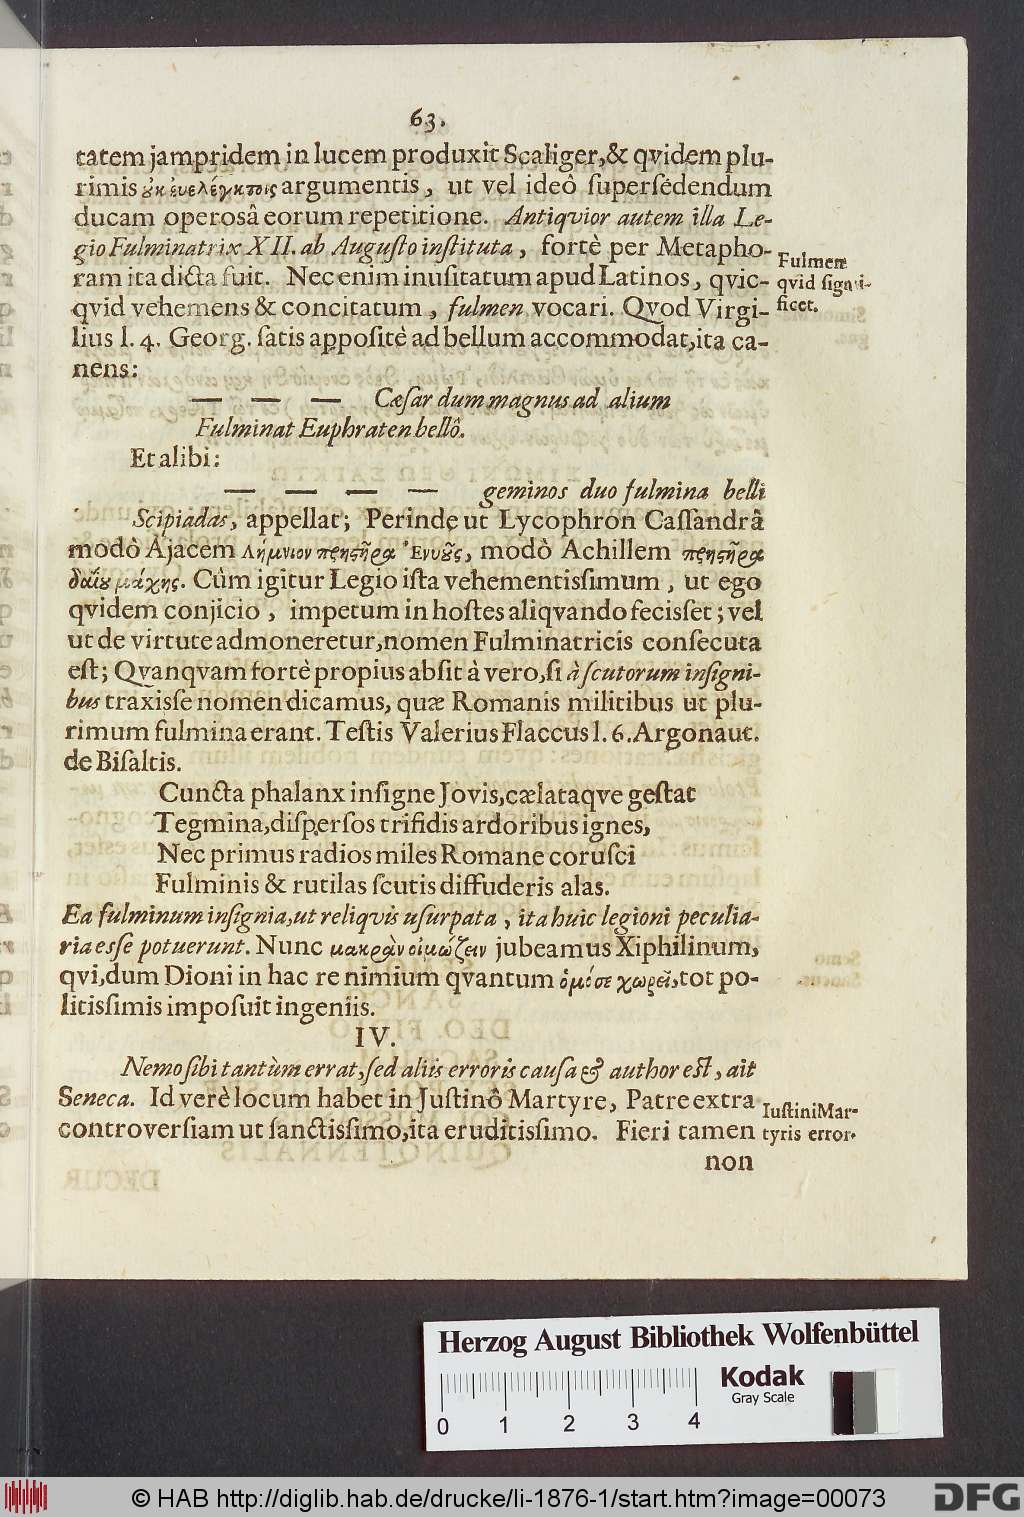 63.
tatem jampridem in lucem produxit Scaliger, & qvidem plu-
rimis argumentis, ut vel ideô superſédendum
ducam operosâ eorum repetitione. Antiqvior autem illa Le-
gio Fulminatrix XII. ab Auguſto inſtituta, fortè per Metapho-
ram ita dicta fuit. Nec enim inuſitatum apud Latinos, qvic-
qvid vehemens & concitatum, fulmen vocari. Qvod Virgi-
lius l. 4. Georg. ſatis appoſitè ad bellum accommodat, ita ca-
nens:
Fulmen
qvid ſigni-
ficet.
— — — Cæſar dum magnus ad alium
Fulminat Euphraten bellô.
Et alibi:
— — — — geminos duo fulmina belli
Scipiadas, appellat; Perinde ut Lycophron Caſſandrâ
modò Ajacem Λήμνιον πρηςῆρα Ἐνυοῦς, modò Achillem πρηςῆρα
δαΐου μάχης. Cûm igitur Legio iſta vehementisſimum, ut ego
qvidem conjicio, impetum in hoſtes aliqvando feciſſet; vel
ut de virtute admoneretur, nomen Fulminatricis conſecuta
eſt; Qvanqvam fortè propius abſit à vero, ſi à ſcutorum inſigni-
bus traxisſe nomen dicamus, quæ Romanis militibus ut plu-
rimum fulmina erant. Teſtis Valerius Flaccus l. 6. Argonaut.
de Biſaltis.
Cuncta phalanx inſigne Jovis, cælataqve geſtat
Tegmina, diſperſos trifidis ardoribus ignes,
Nec primus radios miles Romane coruſci
Fulminis & rutilas ſcutis diffuderis alas.
Ea fulminum inſignia, ut reliqvis uſurpata, ita huic legioni peculia-
ria esſe potuerunt. Nunc μακρὰν οἰμώζειν jubeamus Xiphilinum,
qvi, dum Dioni in hac re nimium qvantum ὁμόσε χωρεῖ, tot po-
litisſimis impoſuit ingeniis.
IV.
Nemo ſibi tantùm errat, ſed aliis erroris cauſa & author eſt, ait
Seneca. Id verè locum habet in Juſtinô Martyre, Patre extra
controverſiam ut ſanctisſimo, ita eruditisſimo. Fieri tamen
Iuſtini Mar-
tyris error.
non
Herzog August Bibliothek Wolfenbüttel
Kodak
Gray Scale
0 1 2 3 4
© HAB http://diglib.hab.de/drucke/li-1876-1/start.htm?image=00073
DFG